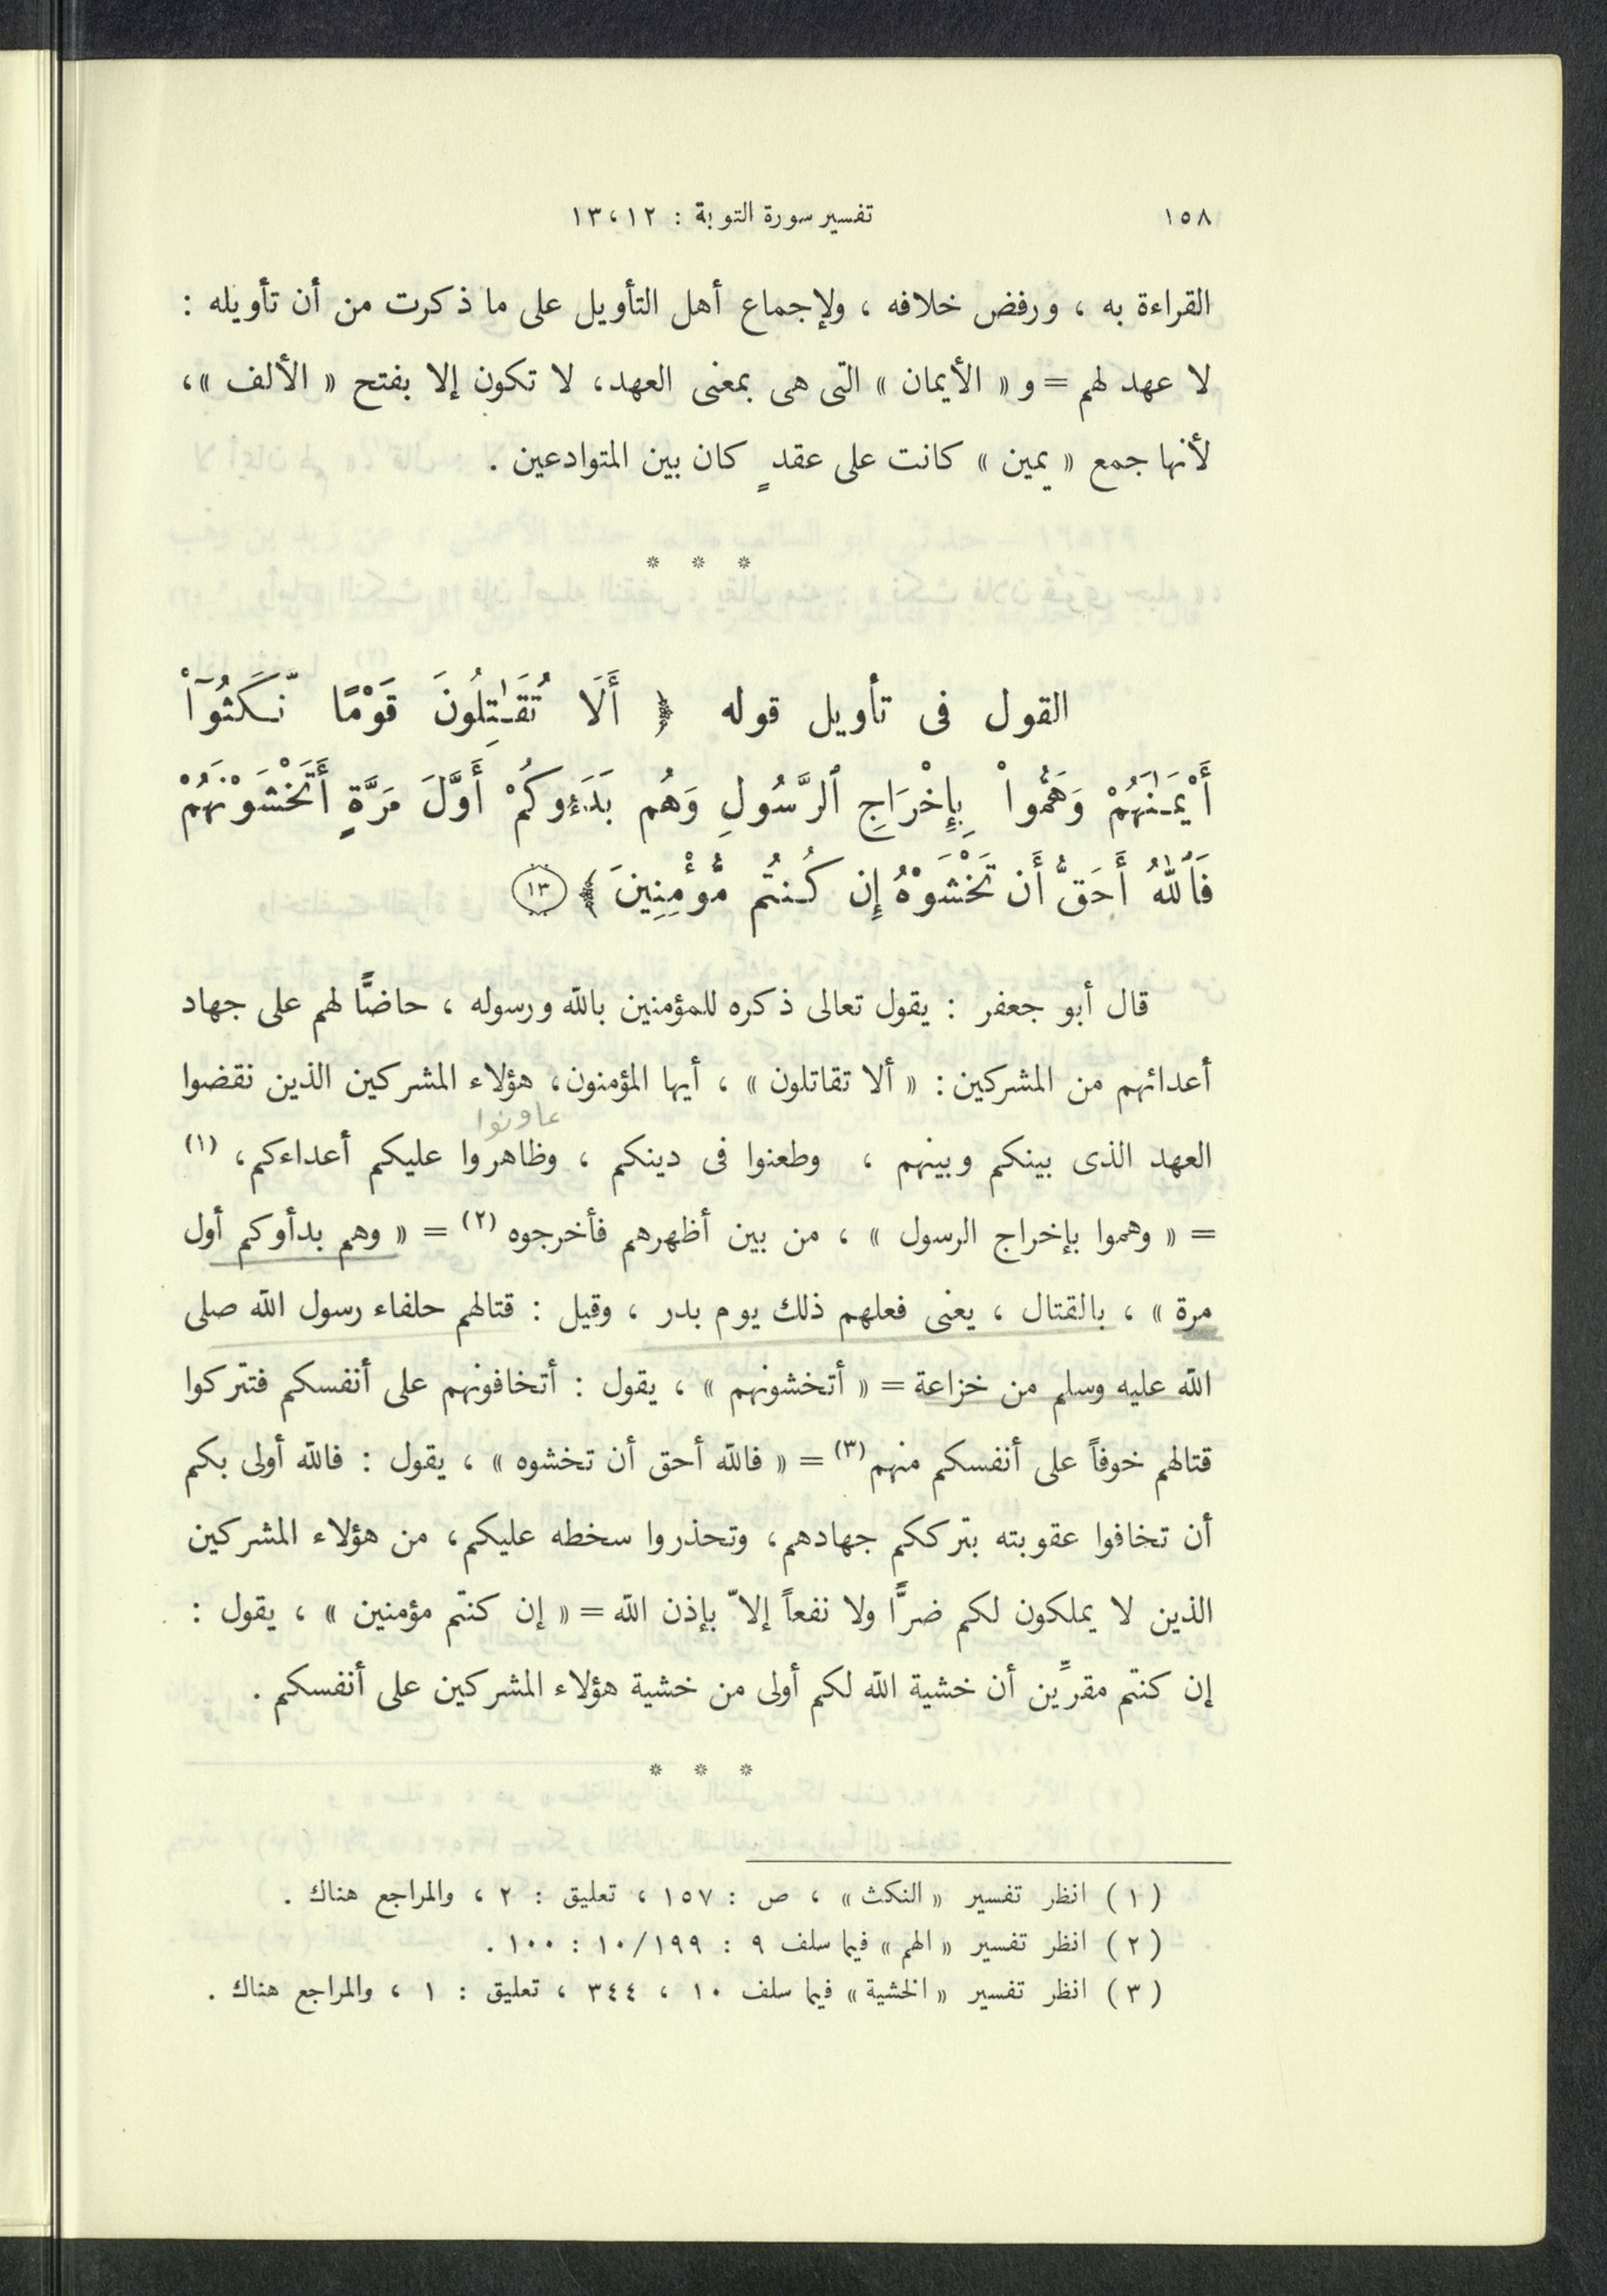 ١٥٨ تفسير سورة التوبة : ١٢ ، ١٣
القراءة به ، ورفض خلافه ، ولإجماع أهل التأويل على ما ذكرت من أن تأويله :
لا عهد لهم = و « الأيمان » التى هى بمعنى العهد، لا تكون إلا بفتح « الألف »،
لأنها جمع « يمين » كانت على عقدٍ كان بين المتوادعين .
* * *
القول فى تأويل قوله ﴿ أَلَا تُقَـٰتِلُونَ قَوْمًا نَّكَثُوٓا۟
أَيْمَـٰنَهُمْ وَهَمُّوا۟ بِإِخْرَاجِ ٱلرَّسُولِ وَهُم بَدَءُوكُمْ أَوَّلَ مَرَّةٍ أَتَخْشَوْنَهُمْ
فَٱللَّهُ أَحَقُّ أَن تَخْشَوْهُ إِن كُنتُم مُّؤْمِنِينَ ﴾ ١٣
قال أبو جعفر : يقول تعالى ذكره للمؤمنين بالله ورسوله ، حاضًّا لهم على جهاد
أعدائهم من المشركين : « ألا تقاتلون » ، أيها المؤمنون، هؤلاء المشركين الذين نقضوا
عاونوا
العهد الذى بينكم وبينهم ، وطعنوا فى دينكم ، وظاهروا عليكم أعداءكم، (١)
= « وهموا بإخراج الرسول » ، من بين أظهرهم فأخرجوه (٢) = « وهم بدأوكم أول
مرة » ، بالقتال ، يعنى فعلهم ذلك يوم بدر ، وقيل : قتالهم حلفاء رسول الله صلى
الله عليه وسلم من خزاعة = « أتخشونهم » ، يقول : أتخافونهم على أنفسكم فتتركوا
قتالهم خوفاً على أنفسكم منهم (٣) = « فالله أحق أن تخشوه » ، يقول : فالله أولى بكم
أن تخافوا عقوبته بترككم جهادهم، وتحذروا سخطه عليكم، من هؤلاء المشركين
الذين لا يملكون لكم ضرًّا ولا نفعاً إلاّ بإذن الله = « إن كنتم مؤمنين » ، يقول :
إن كنتم مقرِّين أن خشية الله لكم أولى من خشية هؤلاء المشركين على أنفسكم .
* * *
( ١ ) انظر تفسير « النكث » ، ص : ١٥٧ ، تعليق : ٢ ، والمراجع هناك .
( ٢ ) انظر تفسير « الهم » فيما سلف ٩ : ١٩٩ / ١٠ : ١٠٠ .
( ٣ ) انظر تفسير « الخشية » فيما سلف ١٠ ، ٣٤٤ ، تعليق : ١ ، والمراجع هناك .